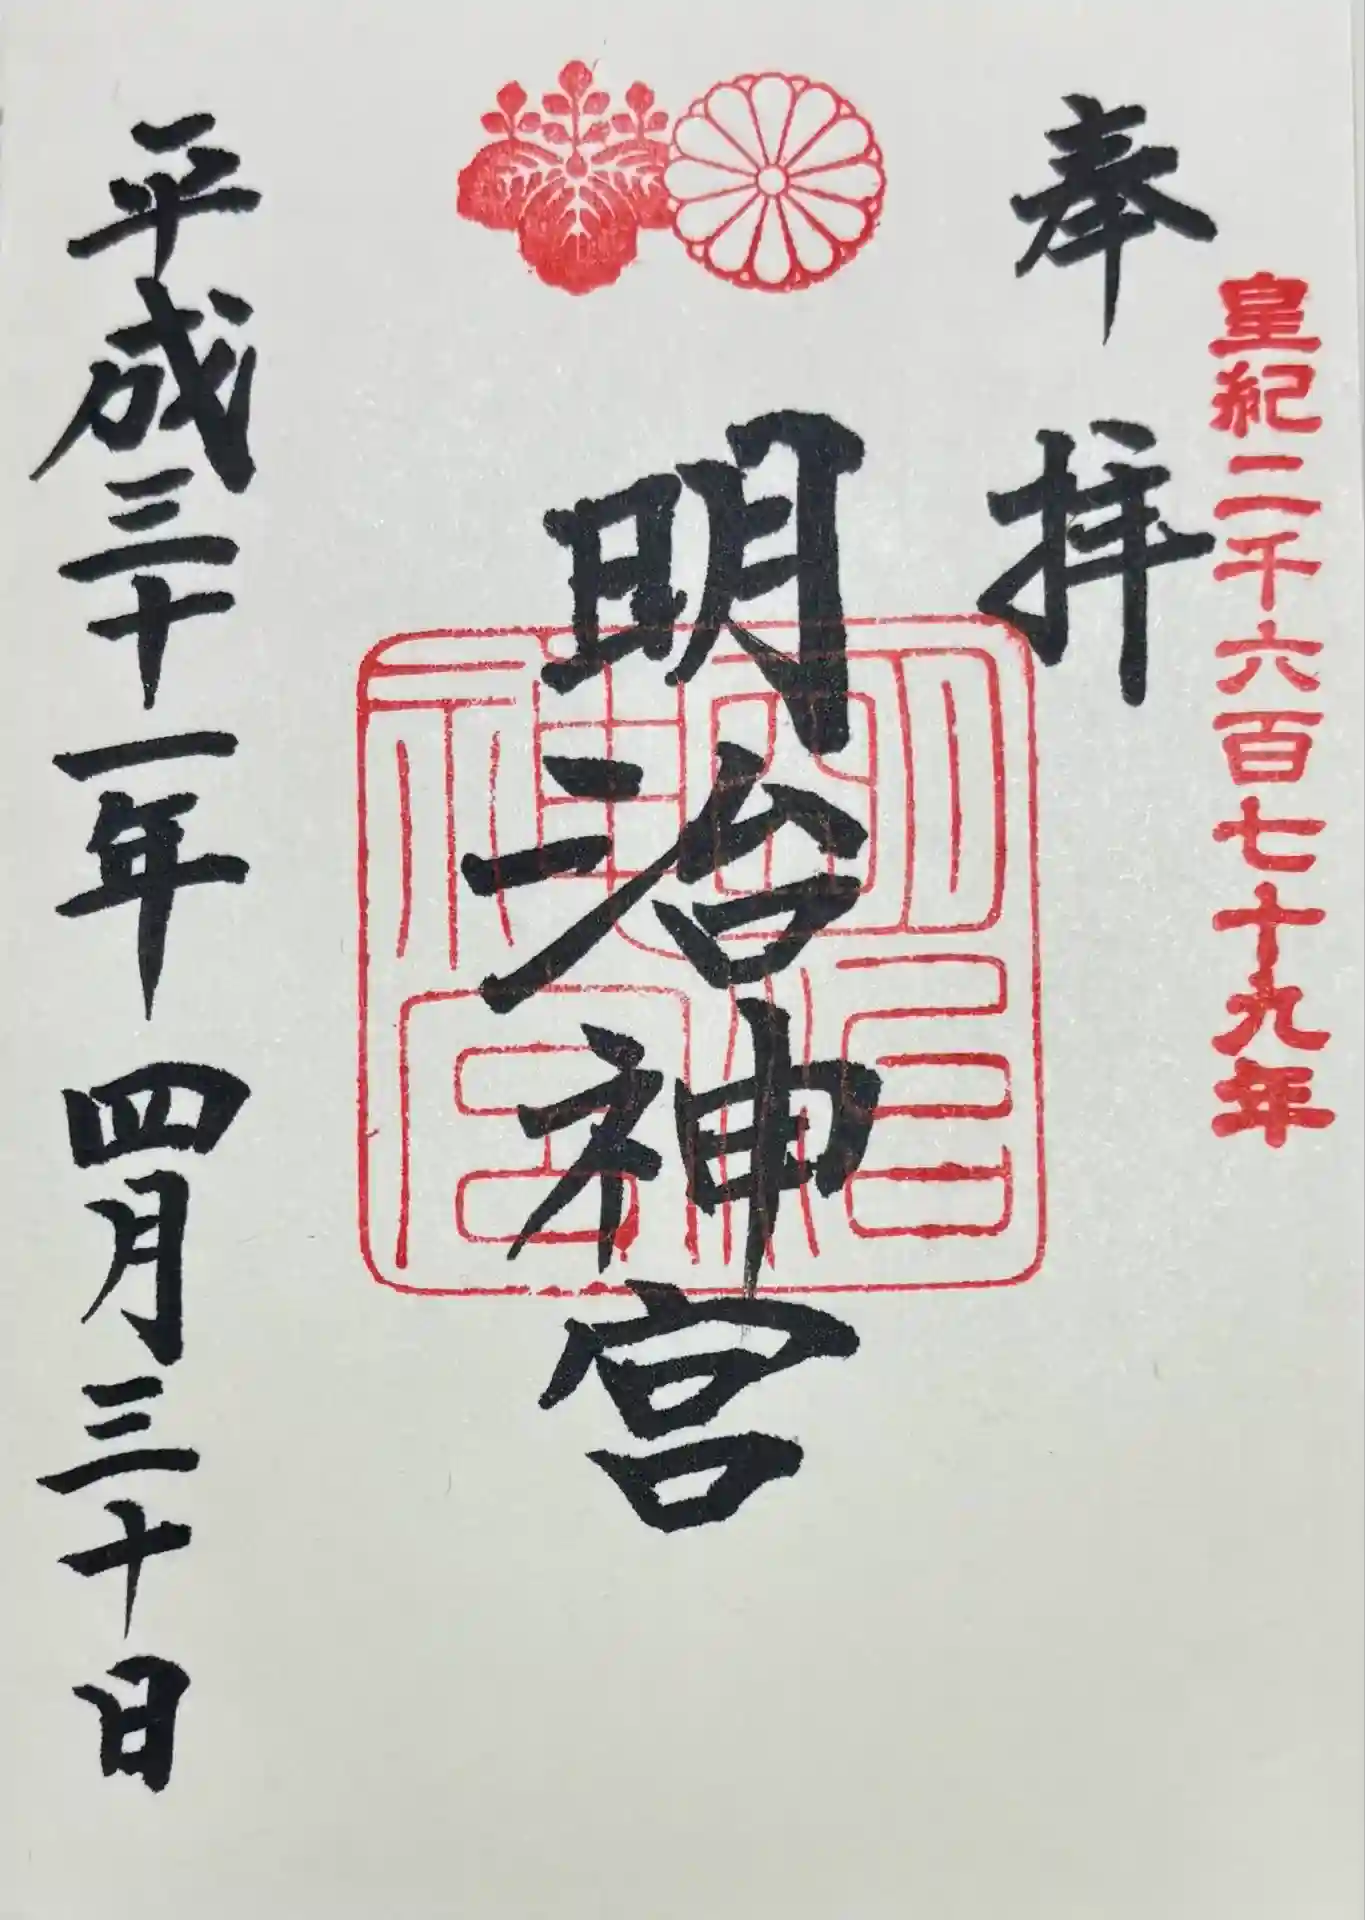 皇紀二千六百七十九年
奉拝
明治神宮
明治神宮
平成三十一年四月三十日